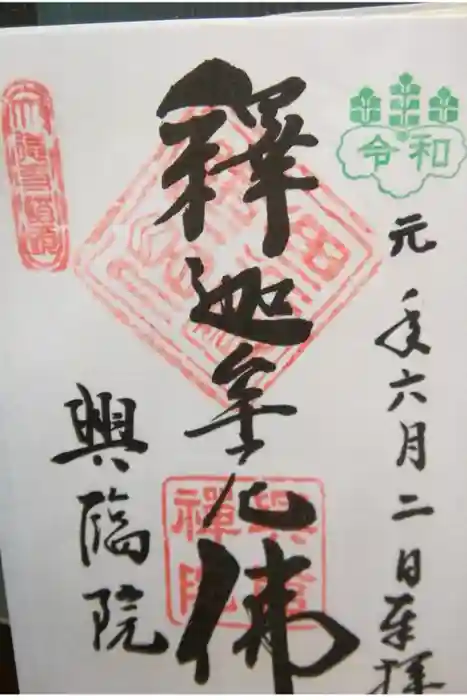 令和
元年六月二日奉拝
釋迦牟尼佛
興臨院